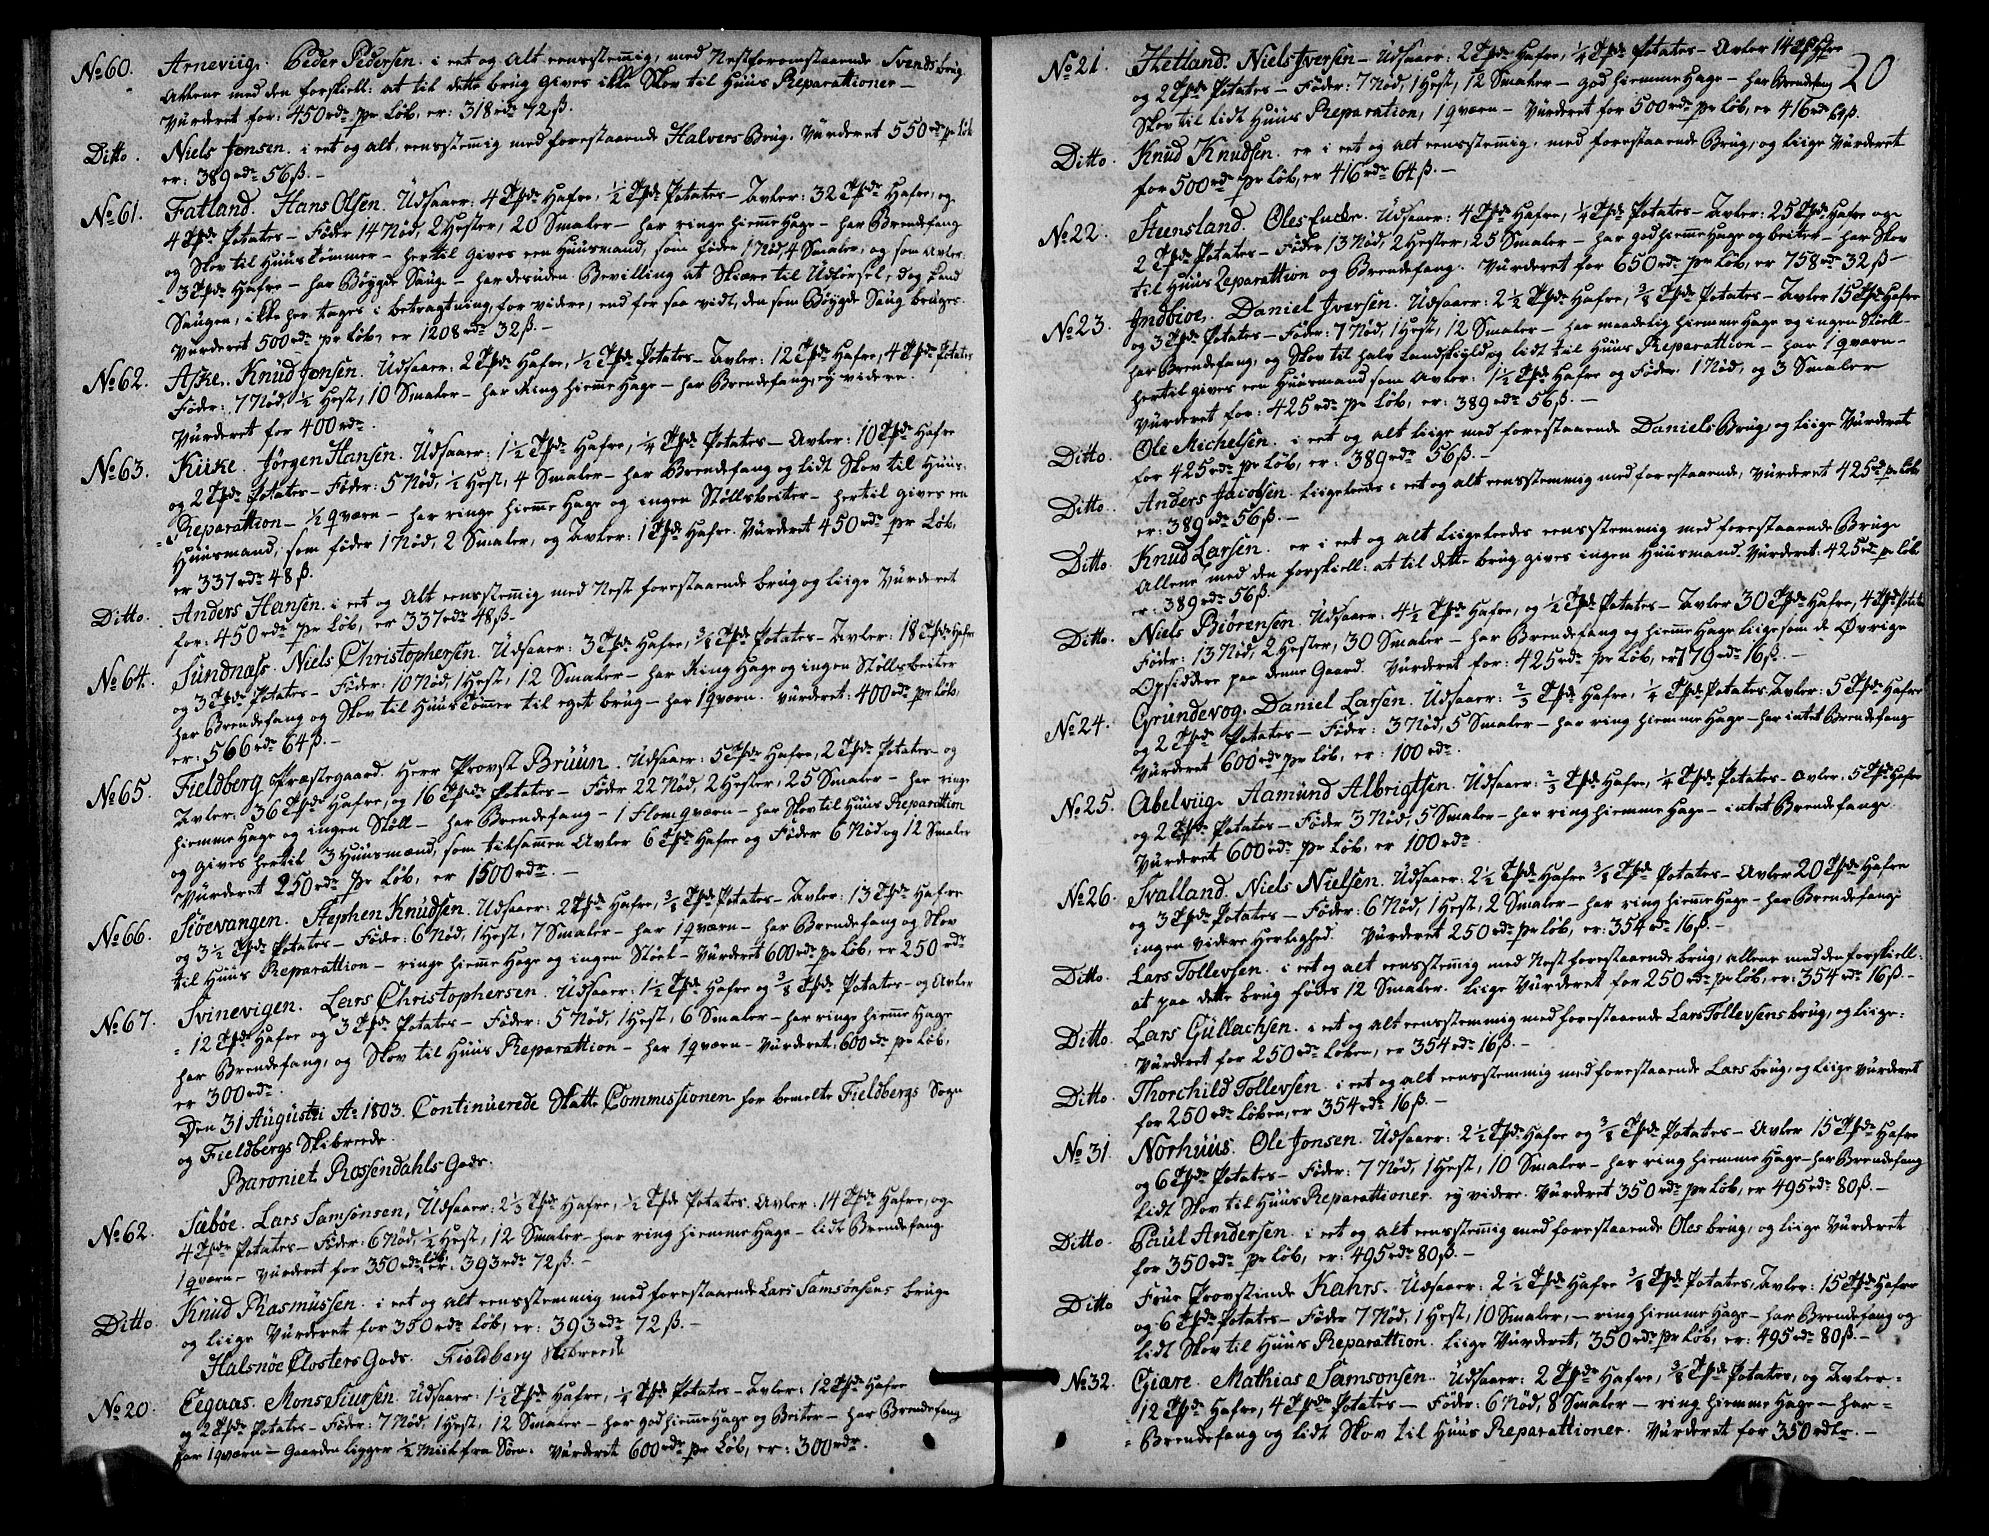 No 60. Arneviig. Peder Pedersen. i eet og Alt eensstemig, med Nestforomstaaende Svends brug.
Allene med den forskiell: at til dette brug gives ikke Skov til Huus Reparationer —
Vurderet for: 450 rdr pr Løb, er: 318 rdr 72 ß.
Ditto. Niels Jonsen. i eet og alt, eensstemig med forestaaende Halvers Brug. Vurderet 550 rdr pr Løb
er: 389 rdr 56 ß. —
No 61. Fatland. Hans Olsen. Udsaaer: 4 Tdr Hafre, ½ Tdr Potates — Avler: 32 Tdr Hafre, og
4 Tdr Potates — Føder 14 Nød, 2 Hester, 20 Smaler — har ringe hieme Hage — har Brendefang
og Skov til Huus Tømmer — hertil gives een Huusmand, som føder 1 Nød, 4 Smaler, og som Avler
3 Tdr Hafre — har Bøygde Saug — har desuden Bevilling at Skiære til Udførsel, dog kand
Saugen, ikke her tages i betragtning, for videre, end for saa vidt, den som Bøygde Saug bruges
Vurderet 500 rdr pr Løb, er 1208 rdr 32 ß. —
No 62. Aske. Knud Jonsen. Udsaaer: 2 Tdr Hafre, ½ Tdr Potates — Avler: 12 Tdr Hafre, 4 Tdr Potates
Føder: 7 Nød, ½ Hest, 10 Smaler — har Ring hieme Hage — har Brendefang, ey videre.
Vurderet for 400 rdr.
No 63. Kirke. Jørgen Hansen. Udsaaer: 1½ Tdr Hafre, ¼ Tdr Potates — Avler: 10 Tdr Hafre
og 2 Tdr Potates — Føder: 5 Nød, ½ Hest, 4 Smaler — har Brendefang og lidt Skov til Huus
Reparattion — ½ qværn — har ringe hieme Hage og ingen Støllsbeiter — hertil gives een
Huusmand, som føder 1 Nød, 2 Smaler, og Avler: 1 Tdr Hafre. Vurderet 450 rdr pr Løb,
er 337 rdr 48 ß.
Ditto. Anders Hansen. i eet og Alt eensstemig med Nest forestaaende brug og liige Vurderet
for: 450 rdr pr Løb, er 337 rdr 48 ß. —
No 64. Sundnæss. Niels Christophersen. Udsaaer: 3 Tdr Hafre, ⅜ Tdr Potates — Avler: 18 Tdr Hafre
og 3 Tdr Potates — Føder: 10 Nød 1 Hest, 12 Smaler — har Ring Hage og ingen Støllsbeiter
har Brendefang og Skov til Huus Tømer til eget brug — har 1 qværn. vurderet: 400 rdr pr Løb,
er: 566 rdr 64 ß. —
No 65. Fieldberg Præstegaard. Herr Provst Bruun. Udsaaer: 5 Tdr Hafre, 2 Tdr Potates — og
Avler: 36 Tdr Hafre, og 16 Tdr Potates — Føder 22 Nød, 2 Hester, 25 Smaler — har ringe
hiemme Hage og ingen Støll — har Brendefang — 1 Flomqværn — har Skov til Huus Reparattion
og gives hertil 3 Huusmænd, som tilsammen Avler 6 Tdr Hafre og Føder 6 Nød og 12 Smaler
Vurderet 250 rdr pr Løb, er 1500 rdr. —
No 66. Siøevangen. Stephen Knudsen. Udsaaer: 2 Tdr Hafre, ⅜ Tdr Potates — Avler: 13 Tdr Hafre
og 3½ Tdr Potates — Føder: 6 Nød, 1 Hest, 7 Smaler — har 1 qværn — har Brendefang og Skov
til Huus Reparattion — ringe hieme Hage og ingen Støel — Vurderet 600 rdr pr Løb, er 250 rdr
No 67. Svinevigen. Lars Christophersen. Udsaaer: 1½ Tdr Hafre og ⅜ Tdr Potates — og Avler
12 Tdr Hafre og 3 Tdr Potates — Føder: 5 Nød, 1 Hest, 6 Smaler — har ringe hieme Hage
har Brendefang, og Skov til Huus Reparattion — har 1 qværn — Vurderet: 600 rdr pr Løb,
er 300 rdr.
Den 31 Augusti Ao 1803. Continuerede Skatte Commissionen for bemelte Fieldbergs Sogn
og Fieldbergs Skibrede.
Baroniet Rossendahls Gods.
No 62. Sæbøe. Lars Samsonsen, Udsaaer: 2½ Tdr Hafre, ½ Tdr Potates. Avler: 14 Tdr Hafre, og
4 Tdr Potates — Føder: 6 Nød, ½ Hest, 12 Smaler — har ring hiemme Hage — lidt Brendefang
1 qværn — Vurderet for 350 rdr Løb, er: 393 rdr 72 ß. —
Ditto. Knud Rasmussen. i eet og Alt eensstemmig med forestaaende Lars Samsonsens brug
og liige Vurderet for 350 rdr Løb, er: 393 rdr 72 ß. —
Halsnøe Closters Gods. Fieldberg Skibrede
No 20. Eegaas. Mons Siursen. Udsaaer: 1½ Tdr Hafre, ¼ Tdr Potates — Avler: 12 Tdr Hafre
og 2 Tdr Potates — Føder: 7 Nød, 1 Hest, 12 Smaler — har god hieme Hage og Beiter — har Brendefang
har 1 qværn — Gaarden ligger ½ Miil fra Søen. Vurderet 600 rdr pr Løb, er: 300 rdr.
20
No 21. Hetland. Niels Iversen — Udsaaer: 2 Tdr Hafre, ¼ Tdr Potates — Avler 14 Tdr Hafre
og 2 Tdr Potates — Føder: 7 Nød, 1 Hest, 12 Smaler — god hiemme Hage — har Brendefang
Skov til lidt Huus Reparation, 1 qværn — Vurderet for 500 rdr pr Løb, er 416 rdr 64 ß.
Ditto. Knud Knudsen. er i eet og alt eensstemig, med forestaaende Brug, og liige Vurderet
for 500 rdr pr Løb, er 416 rdr 64 ß. —
No 22. Steensland. Oles Enche. Udsaaer: 4 Tdr Hafre, ¼ Tdr Potates — Avler: 25 Tdr Hafre og
2 Tdr Potates — Føder 13 Nød, 2 Hester, 25 Smaler — har god hieme Hage og beiter — har Skov
til Huus Reparattion og Brendefang. Vurderet for 650 rdr pr Løb, er 758 rdr 32 ß —
No 23. Indbioe. Daniel Iversen. Udsaaer: 2½ Tdr Hafre, ⅜ Tdr Potates — Avler 15 Tdr Hafre
og 3 Tdr Potates — Føder: 7 Nød, 1 Hest, 12 Smaler — har maadelig hieme Hage og ingen Støell —
har Brendefang, og Skov til halv Landskyld, og lidt til Huus Reparattion — har 1 qværn —
hertil gives een Huusmand som Avler: 1½ Tdr Hafre og Føder 1 Nød, og 3 Smaler
Vurderet, for: 425 rdr pr Løb, er: 389 rdr 56 ß. —
Ditto. Ole Michelsen. i eet og alt liige med forestaaende Daniels Brug, og liige Vurderet
for 425 rdr pr Løb, er: 389 rdr 56 ß. —
Ditto. Anders Jacobsen. liigeledes i eet og alt eensstemmig med forestaaende, Vurderet 425 rd pr Løb
er: 389 rdr 56 ß. —
Ditto. Knud Larsen. er i eet og alt liigeleedes eensstemmig med forestaaende Brug
Allene med den forskiell: at til dette brug gives ingen Huusmand. Vurderet: 425 rdr pr Løb
er: 389 rdr 56 ß.
Ditto. Niels Biørensen. Udsaaer: 4½ Tdr Hafre, og ½ Tdr Potates — Avler 30 Tdr Hafre, 4 Tdr Potates
Føder: 13 Nød, 2 Hester, 30 Smaler — har Brendefang og hieme Hage liige som de Øvrige
Opsiddere paa denne Gaard. Vurderet for: 425 rdr pr Løb, er 179 rdr 16 ß. —
No 24. Grundevog. Daniel Larsen. Udsaaer: ⅔ Tdr Hafre, ¼ Tdr Potates. Avler: 5 Tdr Hafre
og 2 Tdr Potates — Føder: 3 Nød, 5 Smaler — har ring hiemme Hage — har intet Brendefang
Vurderet 600 rdr pr Løb, er: 100 rdr.
No 25. Abelviig. Aamund Albrigtsen. Udsaaer: ⅔ Tdr Hafre, ¼ Tdr Potates — Avler: 5 Tdr Hafre
og 2 Tdr Potates — Føder 3 Nød, 5 Smaler — har ring hiemme Hage — intet Brendefang.
Vurderet 600 rdr pr Løb, er 100 rdr.
No 26. Svalland. Niels Nielsen. Udsaaer: 2½ Tdr Hafre ⅜ Tdr Potates — Avler 20 Tdr Hafre
og 3 Tdr Potates — Føder: 6 Nød, 1 Hest, 2 Smaler — har ring hieme Hage — har Brendefang
ingen videre Herlighed. Vurderet 250 rdr pr Løb, er: 354 rdr 16 ß. —
Ditto. Lars Tollevsen. i eet og alt eensstemig med Nest forestaaende brug, allene med den forskiell:
at paa dette brug fødes 12 Smaler. liige Vurderet for 250 rdr pr Løb, er: 354 rdr 16 ß. —
Ditto. Lars Gullachsen. i eet og alt eensstemmig med forestaaende Lars Tollevsens brug, og liige
Vurderet for 250 rdr Løben, er 354 rdr 16 ß. —
Ditto. Thorchild Tollevsen. i eet og alt eensstemmig med forestaaende Lars brug, og liige Vurderet
for 250 rdr Løben, er 354 rdr 16 ß. —
No 31. Norhuus. Ole Jonsen. Udsaaer: 2½ Tdr Hafre og ⅜ Tdr Potates — Avler 15 Tdr Hafre
og 6 Tdr Potates — Føder: 7 Nød, 1 Hest, 10 Smaler — har ring hiemme Hage — har Brendefang
lidt Skov til Huus Reparattioner. ey videre. Vurderet 350 rdr pr Løb, er 495 rdr 80 ß. —
Ditto. Paul Andersen. i eet og alt eensstemig med forestaaende Oles brug, og liige Vurderet
for 350 rdr pr Løb, er: 495 rdr 80 ß. —
Ditto Frue Provstinde Kahrs. Udsaaer: 2½ Tdr Hafre ⅜ Tdr Potates, Avler: 15 Tdr Hafre
og 6 Tdr Potates — Føder 7 Nød, 1 Hest, 10 Smaler, — ring hiemme Hage — har Brendefang og
lidt Skov til Huus Reparattion. liige Vurderet, 350 rdr pr Løb, er: 495 rdr 80 ß. —
No 32. Giære. Mathias Samsonsen. Udsaaer: 2 Tdr Hafre, ⅜ Tdr Potates, og Avler
12 Tdr Hafre, 4 Tdr Potates — Føder: 6 Nød, 8 Smaler — ring hieme Hage — har
Brendefang og lidt Skov til Huus Reparattioner. Vurderet for 350 rdlr. —